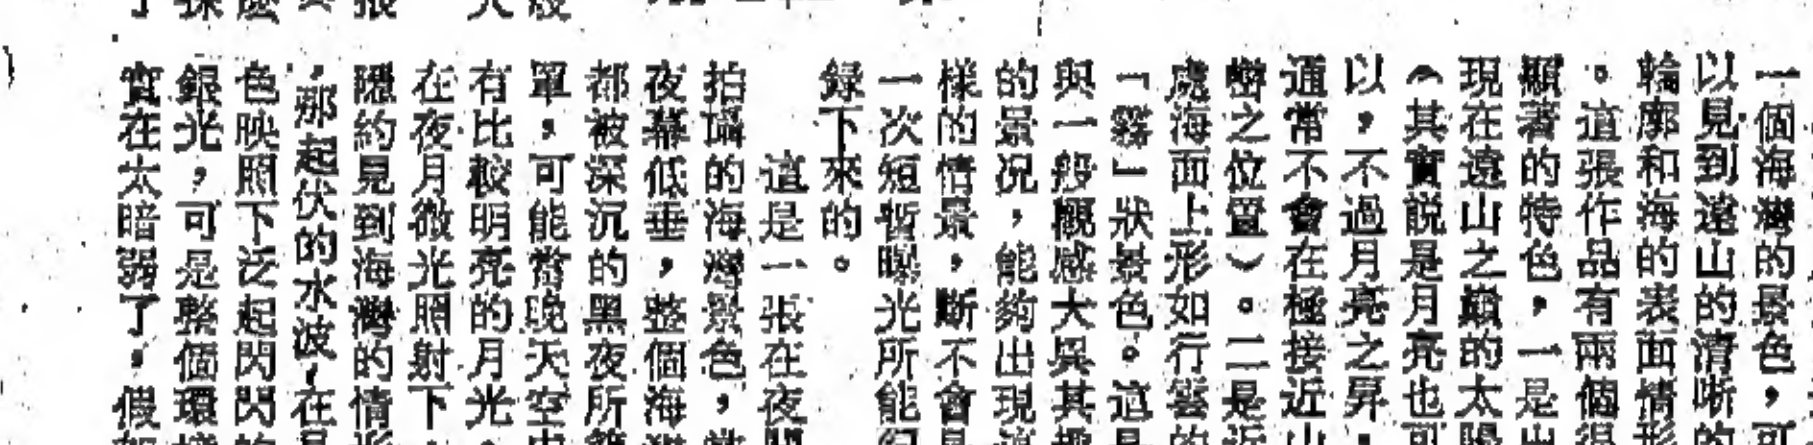 一個海灣的景色，可
以見到遠山的清晰的
輪廓和海的表面情形
。這張作品有兩個很
顯著的特色，一是出
現在遠山之巔的太陽
（其實說是月亮也可
以，不過月亮之昇，
通常不會在極接近山
巒之位置）。二是近
處海面上形如行雲的
「霧」狀景色。這是
與一般觀感大異其趣
的景況，能夠出現這
樣的情景，斷不會是
一次短暫曝光所能紀
錄下來的。
這是一張在夜間
拍攝的海灣景色，
夜幕低垂，整個海灣
都被深沉的黑夜所籠
單，可能當晚天空中
有比較明亮的月光，
在夜月微光照射下，
隱約見到海灣的情形
，那起伏的水波，在
色映照下泛起閃閃的
銀光，可是整個環境
實在太暗弱了，假如